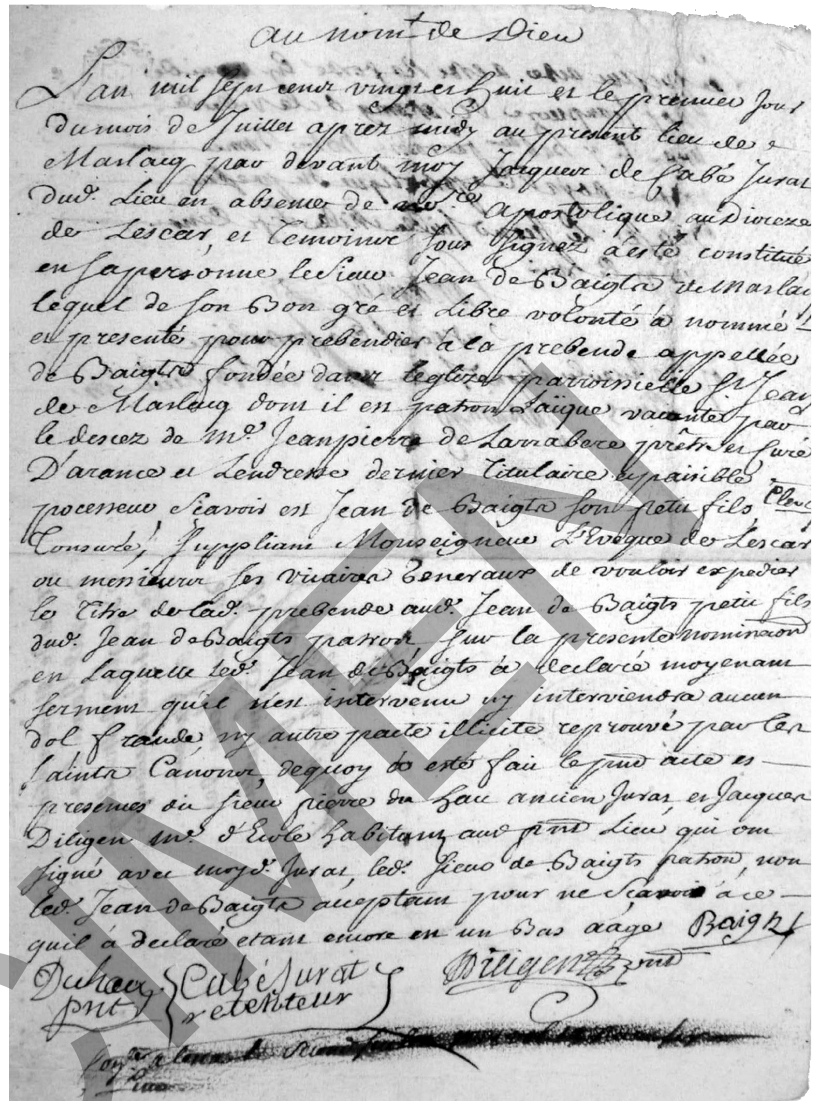 au nom de Dieu
L'an mil sept cent vingt et huit et le premier Jour
du mois de Juillet aprez midy au present lieu de
Maslacq par devant moy Jacques de Cabé Jurat
dud. Lieu en absence de nore apostolique au Dioceze
de Lescar, et Temoins sous signez a esté constitué
en sa personne le Sieur Jean de Baigts de Maslacq
lequel de son Bon gré et Libre volonté à nommé
et presenté pour prebendier à là prebende appellée
de Baigts fondée dans leglize parroissielle St Jean
de Maslacq dont il est patron Laïque vacante par
le descez de Me. Jean pierre de Larrabere prêtre et Curé
D'arance et Lendresse dernier Titulaire et paisible
pocesseur Scavoir est Jean de Baigts son petit fils Clerc
Tonsuré, Suppliant Monseigneur L'Eveque de Lescar
ou messieurs ses vicaires Generaux de vouloir expedier
le Titre de lad. prebende aud. Jean de Baigts petit fils
dud. Jean de Baigts patron sur la presente nominaon
en Laquelle led. Jean de Baigts à declaré moyenant
serment qu'il n'est intervenu ny interviendra aucun
dol, fraude, ny autre pacte illicite reprouvé par les
saints Canons, de quoy a esté fait le pnt acte es
presences du sieur pierre du hau ancien Jurat et Jacques
Diligen Me. d'Ecole habitans aud pnt Lieu, qui ont
signé avec moyd. Jurat, led. sieur de Baigts patron, non
led. Jean de Baigts acceptant pour ne scavoir à ce
quil à declaré etant encore en un Bas aâge Baigts
Duhau pnt Cabé Jurat retenteur Diligen pnt
SPECIMEN